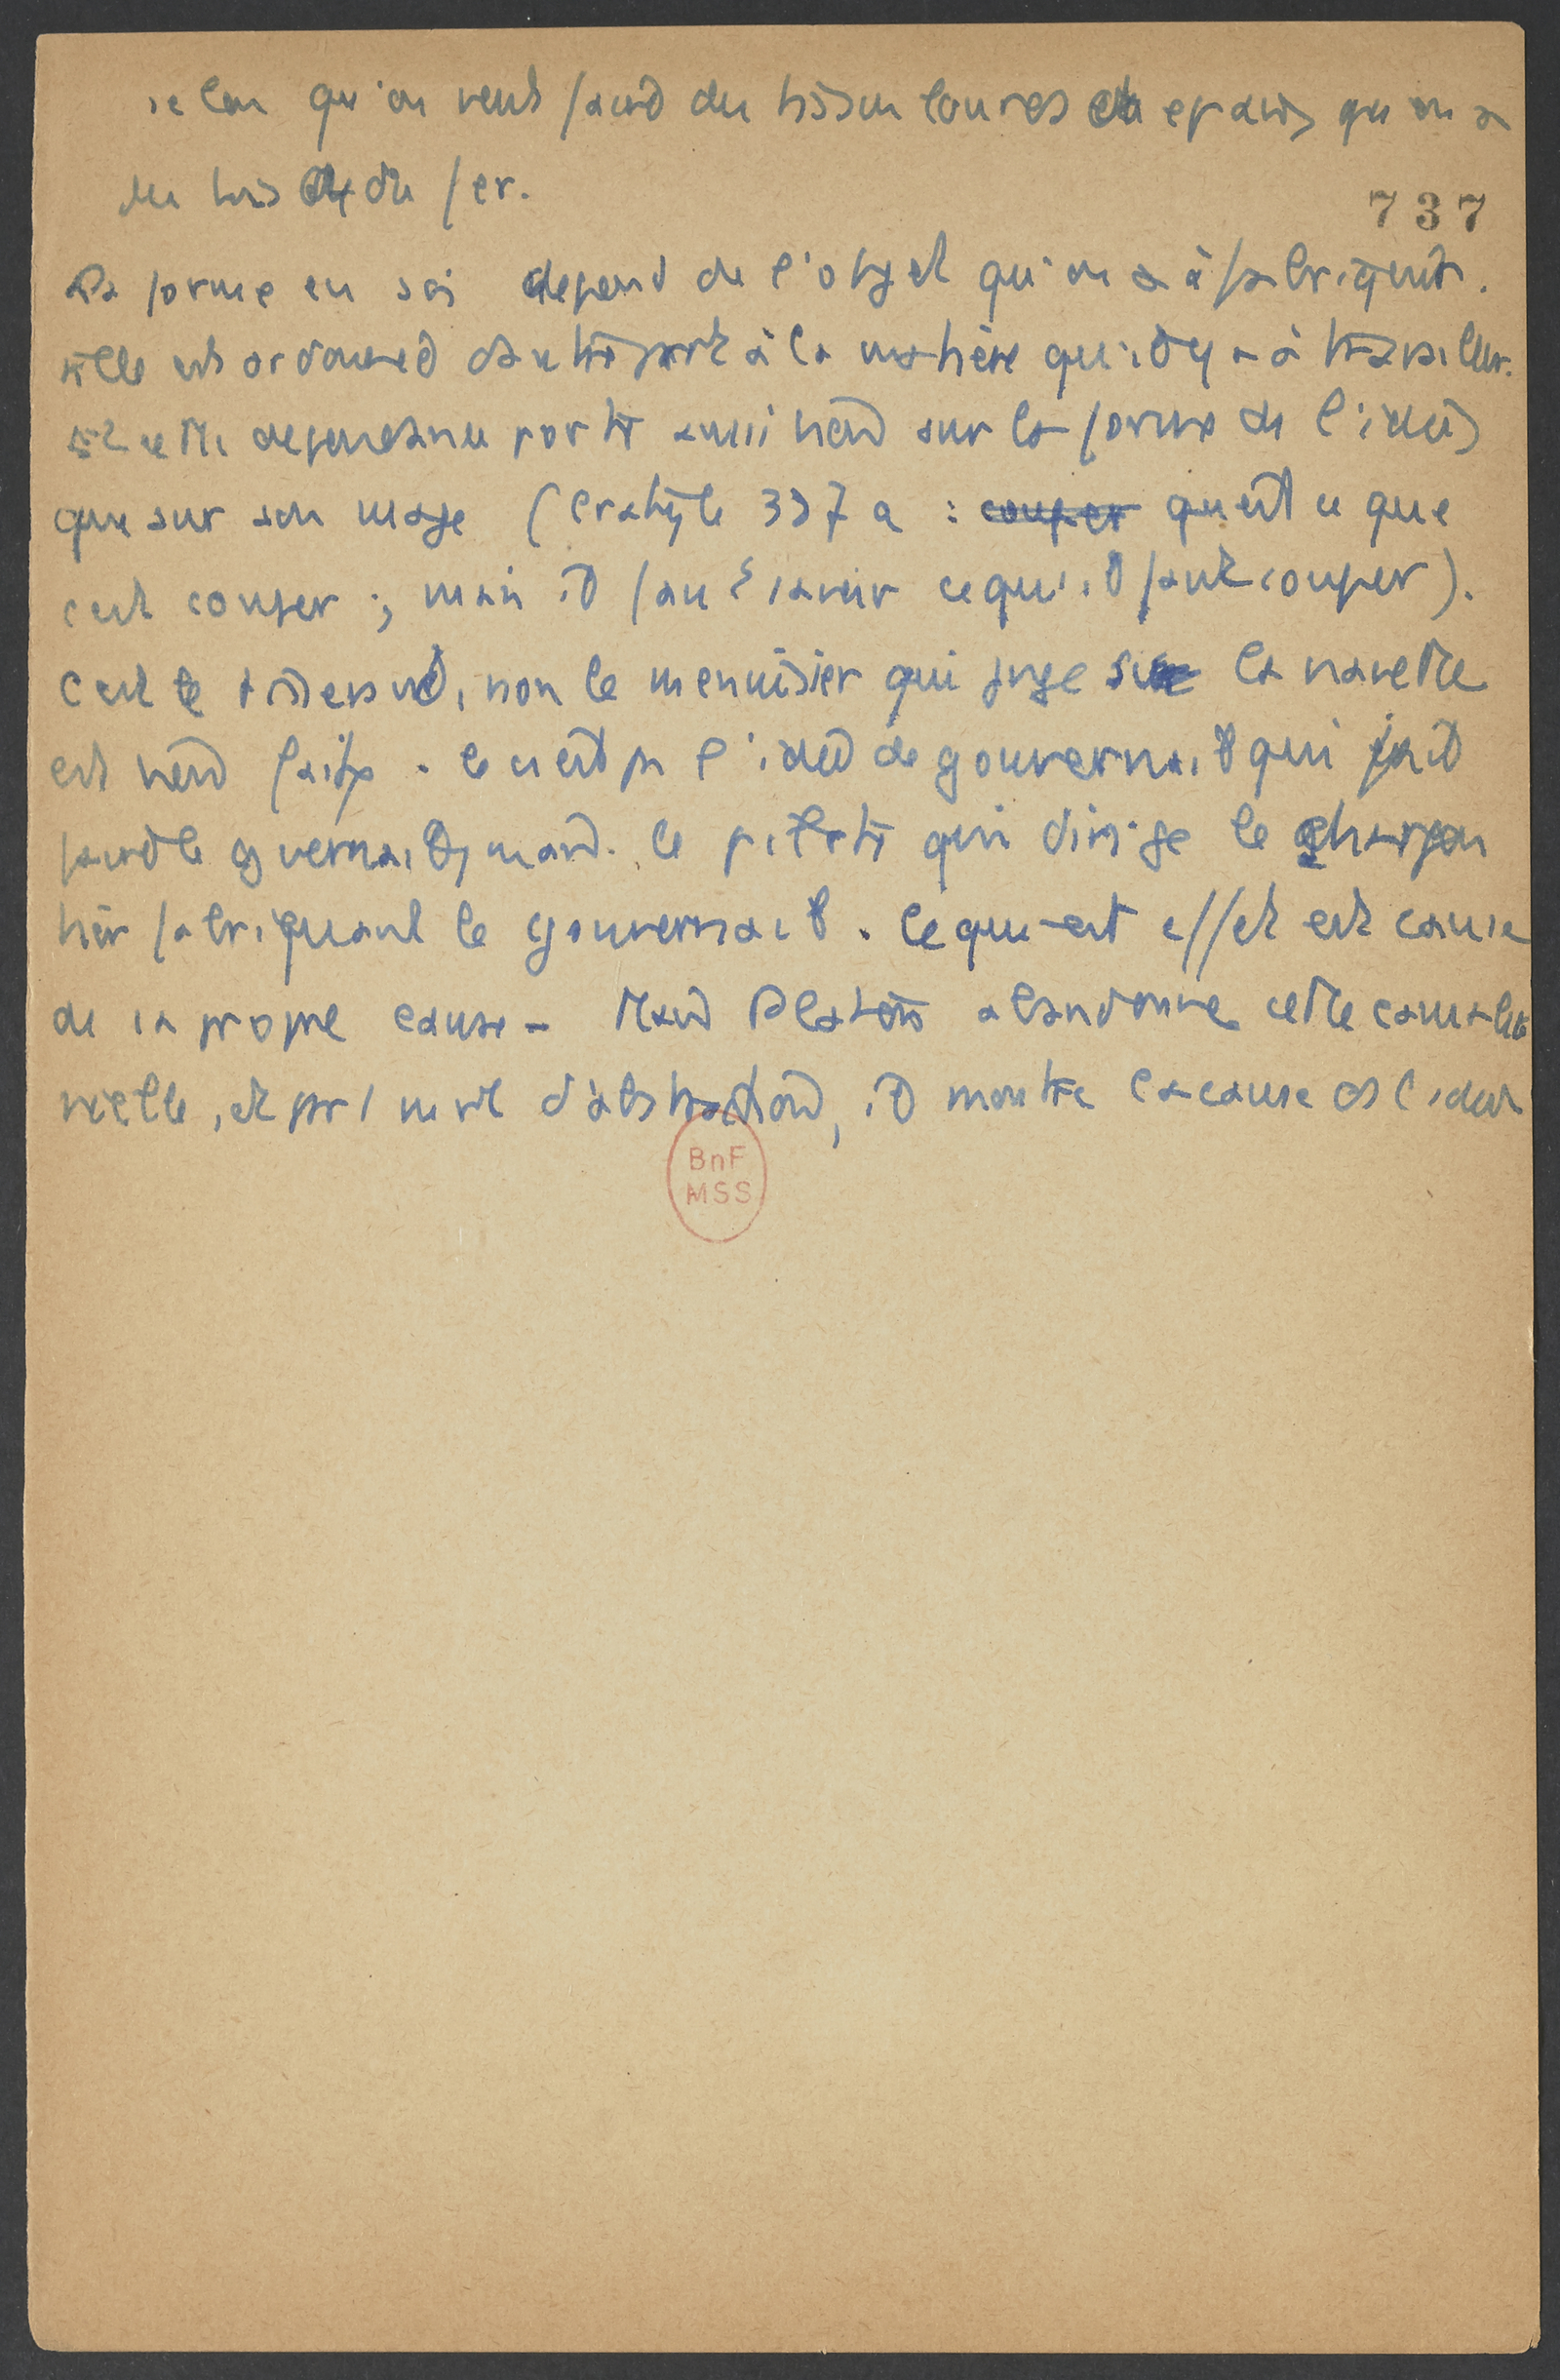 selon qu'on veut faire du tissu lourd ou épais, qu'on a
du bois ou du fer.
La forme en soi dépend de l'objet qu'on a à fabriquer.
Elle est ordonnée d'autre part à la matière qu'il y a à travailler.
Et cette dépendance porte aussi bien sur la forme de l'idée
que sur son usage (Cratyle 387 a : couper qu'est ce que
c'est couper ; mais il faut savoir ce qu'il faut couper).
C'est le tisserand, non le menuisier qui juge si la navette
est bien faite. Ce n'est pas l'idée de gouvernail qui fait
faire le gouvernail, mais le pilote qui dirige le charpen
tier fabriquant le gouvernail. Ce qui est effet est cause
de sa propre cause. Mais Platon abandonne cette causalité
réelle, et par d'abstraction, il montre la cause ds l'idée
737
BnF
MSS